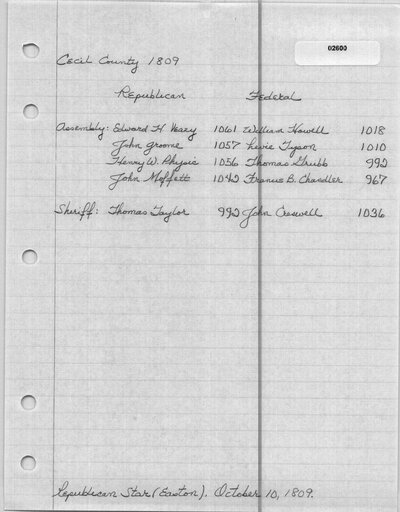 02600
Cecil County 1809
Republican Federal
Assembly: Edward H. Veazy 1061 William Howell 1018
John Groome 1057 Levie Tyson 1010
Henry W. Physic 1056 Thomas Grubb 992
John Moffett 1042 Francis B. Chandler 967
Sheriff: Thomas Taylor 992 John Creswell 1036
Republican Star (Easton). October 10, 1809.